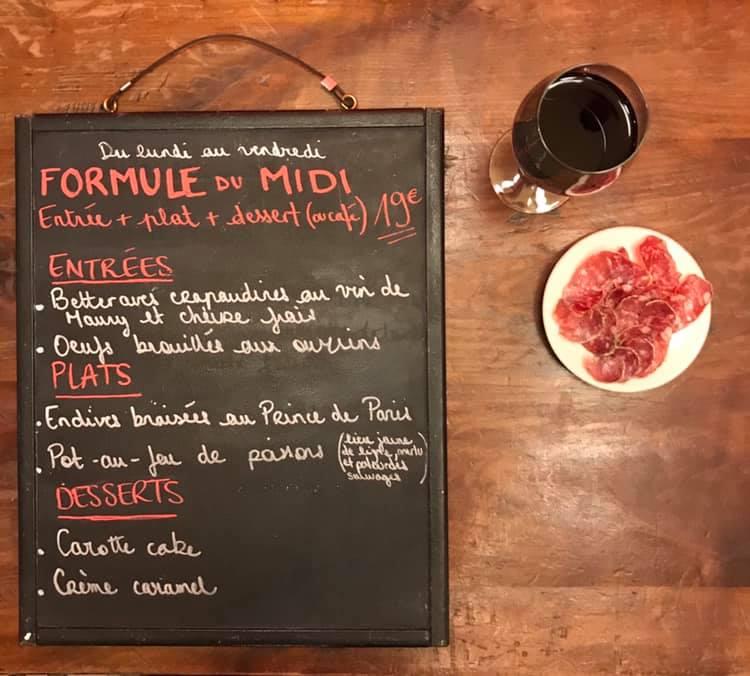 Du lundi au vendredi
FORMULE DU MIDI
Entrée + plat + dessert (ou café) 19€
ENTRÉES
• Betteraves crapaudines au vin de
Maury et chèvre frais
• Oeufs brouillés aux oursins
PLATS
• Endives braisées au Prince de Paris
• Pot-au-feu de poissons (lieu jaune
de ligne, merlu
et palourdes
sauvages)
DESSERTS
• Carotte cake
• Crème caramel